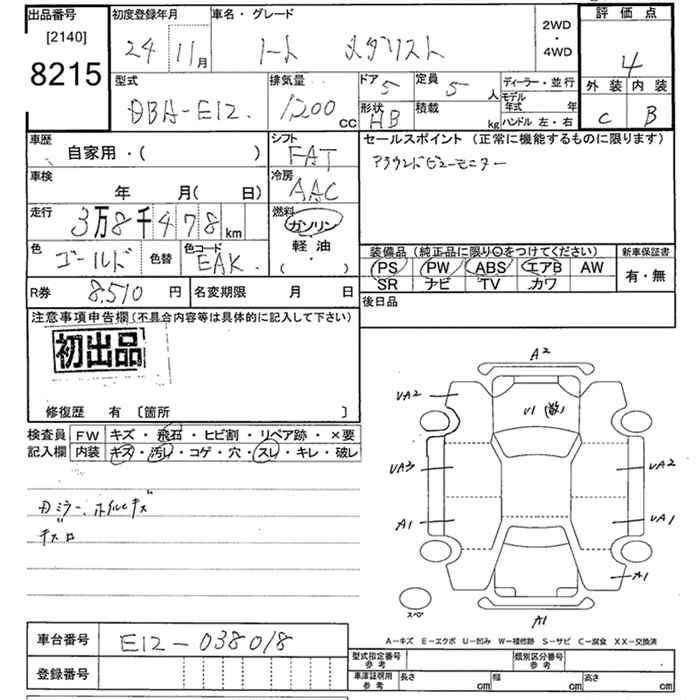 出品番号
[2140]
8215
初度登録年月
24 11月
車名・グレード
ノート メダリスト
2WD
・
4WD
評価点
4
外装 内装
C B
型式
DBA-E12
排気量
1200 cc
ドア 5
定員 5 人
形状 HB
積載 kg
ディーラー・並行
モデル年式 年
ハンドル 左・右
車歴
自家用・( )
シフト
FAT
セールスポイント (正常に機能するものに限ります)
アラウンドビューモニター
車検
年 月( 日)
冷房
AAC
走行
3万8千478km
燃料
ガソリン
軽油・
( ・ )
色
ゴールド
色替
色コード
EAK
装備品 (純正品に限り○をつけてください)
PS PW ABS エアB AW
SR ナビ TV カワ
新車保証書
有・無
R券 8,510 円
名変期限 月 日
後日品
注意事項申告欄 (不具合内容等は具体的に記入して下さい)
初出品
修復歴 有 [箇所 ]
検査員記入欄
FW キズ・飛石・ヒビ割・リペア跡・×要
内装 キズ・汚れ・コゲ・穴・スレ・キレ・破レ
ミラー、ホイルキズ
A2
UA2
U1
UA3
UA2
A1
UA1
A1
スペア
A1
A-キズ E-エクボ U-凹み W-補修跡 S-サビ C-腐食 XX-交換済
車台番号
E12-038018
登録番号
型式指定番号
参考
類別区分番号
参考
車庫証明用
参考
長さ cm
幅 cm
高さ cm